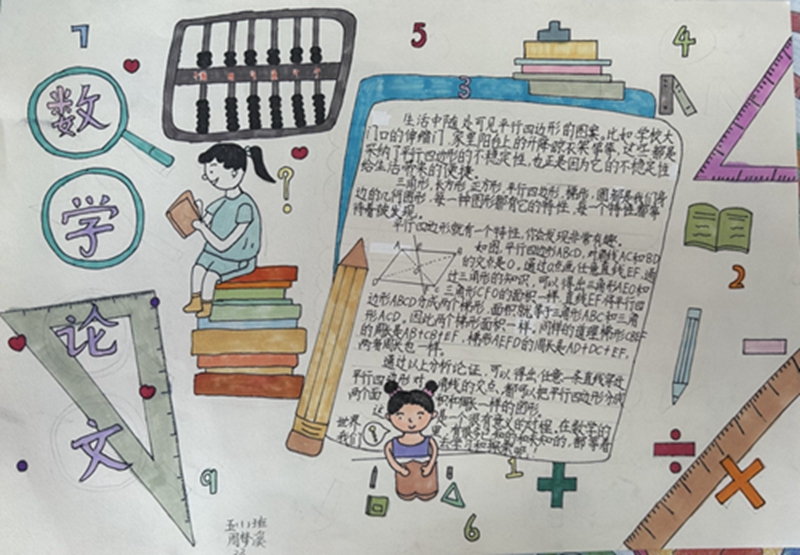 7
5
4
3
数
学
论
文
生活中随处可见平行四边形的图案。比如学校大
门口的伸缩门、家里阳台上的升降晾衣架等等。这些都是
采纳了平行四边形的不稳定性,也正是因为它的不稳定性
给生活带来的便捷。
三角形,长方形,正方形,平行四边形,梯形,圆,都是我们身
边的几何图形,每一种图形都有它的特性,每一个特性都等
待着被发现。
平行四边形就有一个特性,你会发现非常有趣。
如图,平行四边形ABCD,对角线AC和BD
的交点是O,通过O点画任意直线EF,通
过三角形的知识,可以得出三角形AEO和
三角形CFO的面积一样,直线EF将平行四
边形ABCD分成两个梯形,面积就等于三角形ABC和三角
形ACD。因此两个梯形面积一样。同样的道理梯形CBEF
的周长是AB+CB+EF,梯形AEFD的周长是AD+DC+EF,
两者周长也一样。
通过以上分析论证,可以得出,任意一条直线穿过
平行四边形对角线的交点,都可以把平行四边形分成
两个面积和周长一样的图形。
是一个很有意义的过程,在数学的
世界里,有很多已知的和未知的,都等着
我们去学习和探索呢!
2
?
9
1
6
五(1)班